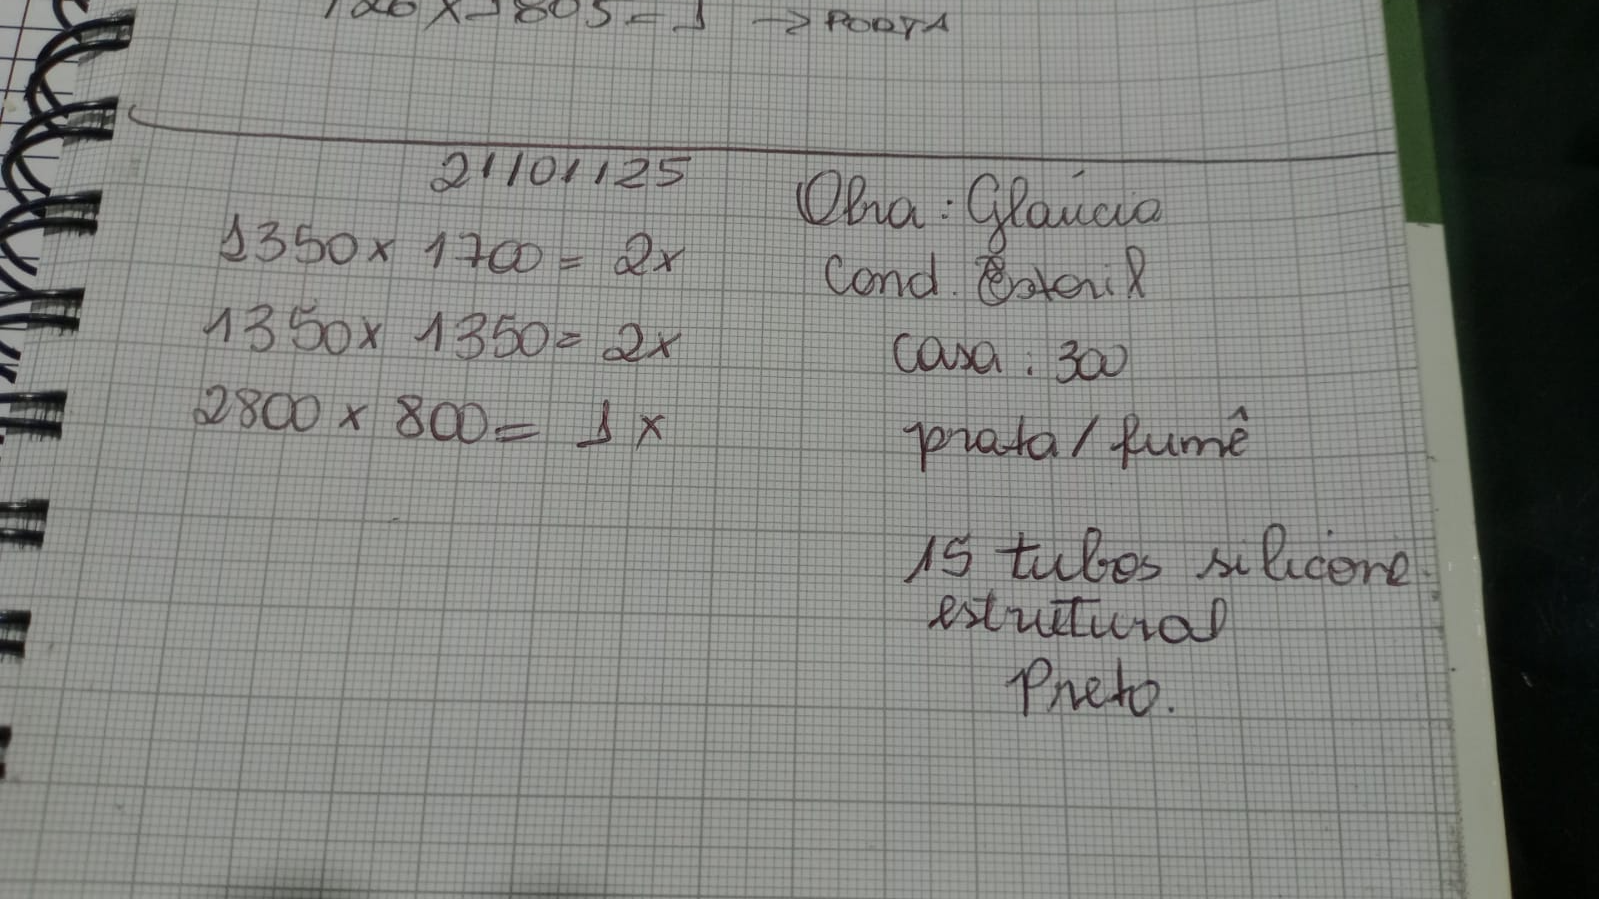 805 = 1 → PORTA
21/01/25
1350 x 1700 = 2x
1350 x 1350 = 2x
2800 x 800 = 1 x
Obra : Gláucia
Cond. Esteril
casa : 300
prata / fumê
15 tubos silicone
estrutural
Preto.